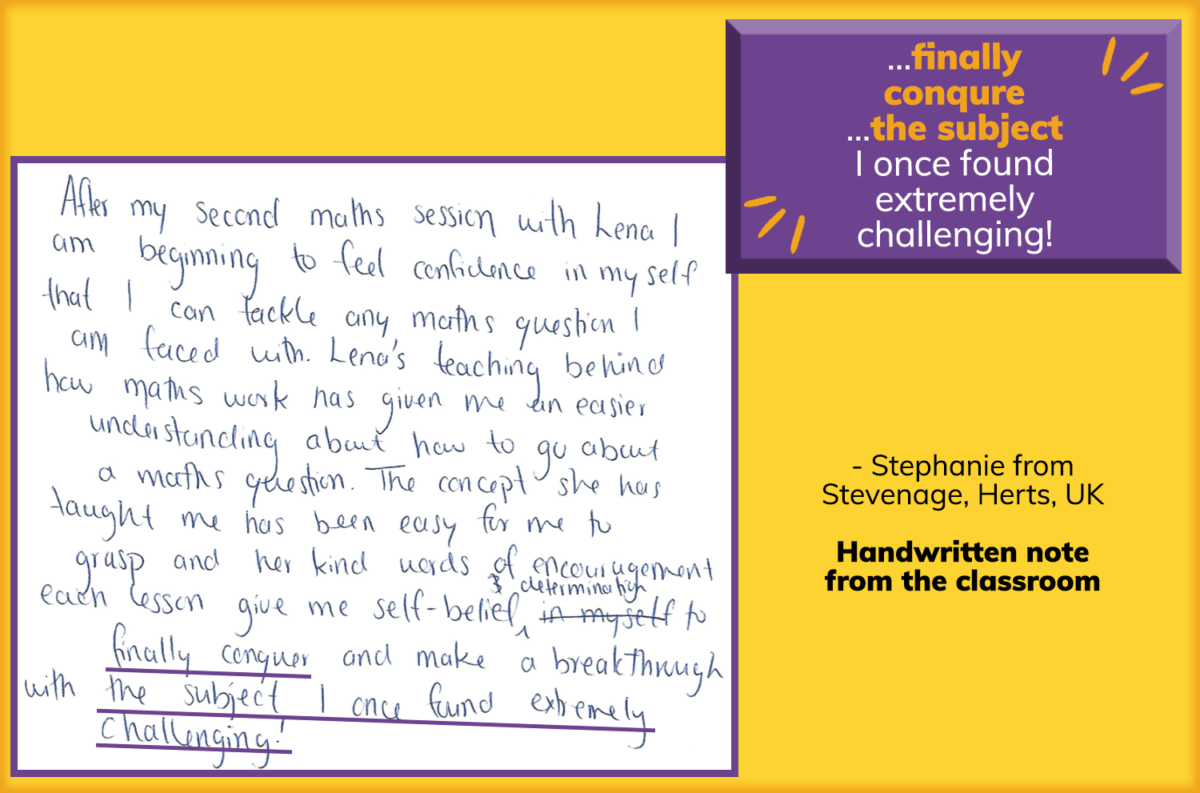 ...finally
conqure
...the subject
I once found
extremely
challenging!
After my second maths session with Lena I
am beginning to feel confidence in myself
that I can tackle any maths question I
am faced with. Lena's teaching behind
how maths work has given me an easier
understanding about how to go about
a maths question. The concept she has
taught me has been easy for me to
grasp and her kind words of encouragement
& determination
each lesson give me self-belief, in myself to
finally conquer and make a breakthrough
with the subject I once found extremely
challenging!
- Stephanie from
Stevenage, Herts, UK
Handwritten note
from the classroom